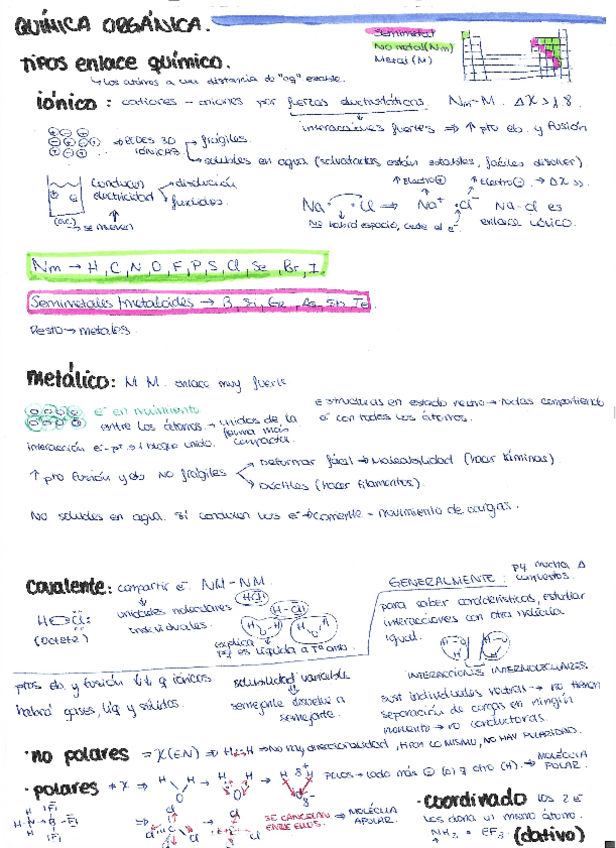 QUÍMICA ORGÁNICA.
Semimetal
No metal (Nm)
Metal (M)
TIPOS ENLACE QUÍMICO.
Los átomos a una distancia de "eq" estable.
iónico: cationes - aniones por fuerzas electrostáticas. Nm-M. ΔX>1,8.
interacciones fuertes ⇒ ↑ pto eb. y fusión
REDES 3D IÓNICAS
frágiles
solubles en agua (solvatados están estables, fáciles disolver)
conducen electricidad
disolución
fundidos.
se mueven
Na · Cl ⇒ Na⁺ Cl⁻ Na-Cl es
No habrá espacio, cede el e⁻. enlace iónico.
Nm → H, C, N, O, F, P, S, Cl, Se, Br, I
Semimetales/metaloides → B, Si, Ge, As, Sb, Te.
Resto → metales.
metálico: M M. enlace muy fuerte
e⁻ en movimiento
entre los átomos → unidos de la forma más compacta.
estructuras en estado neutro → todas compartiendo
e⁻ con todos los átomos.
↑ pto fusión y eb No frágiles
Deformar fácil → Maleabilidad (hacer láminas).
Dúctiles (hacer filamentos).
No solubles en agua. Sí conducen los e⁻ → corriente - movimiento de cargas.
covalente: compartir e⁻. NM-NM.
unidades moleculares individuales.
H Cl
(octete)
H-Cl
explica
GENERALMENTE:
para saber características, estudiar
interacciones con otra molécula
igual.
INTERACCIONES INTERMOLECULARES
ptos eb. y fusión ↓↓ q iónicos.
habrá gases, líq y sólidos.
solubilidad variable
semejante disuelve a
semejante.
sust individuales neutras → no tienen
separación de cargas en ningún
momento → no conductoras.
· no polares = X(EN) ⇒ H-H ⇒ No hay direccionalidad, tiran lo mismo, NO HAY POLARIDAD.
· polares ≠ X ⇒ H O H
Polos → lado más ⊖ (O) y otro (H). ⇒ MOLÉCULA POLAR.
Cl C Cl
SE CANCELAN ENTRE ELLOS. ⇒ MOLÉCULA APOLAR.
· coordinado los 2 e⁻
los dona un mismo átomo.
(dativo)